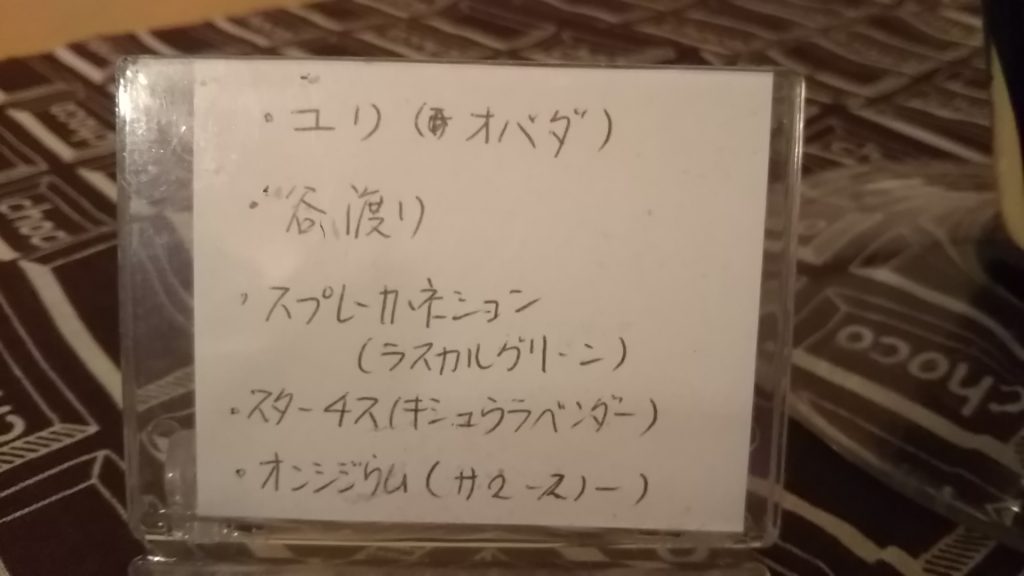 ・ユリ（オバダ）
・谷渡り
・スプレーカーネーション
（ラスカルグリーン）
・スターチス（キシュウラベンダー）
・オンシジウム（サワースノー）
choco
choco